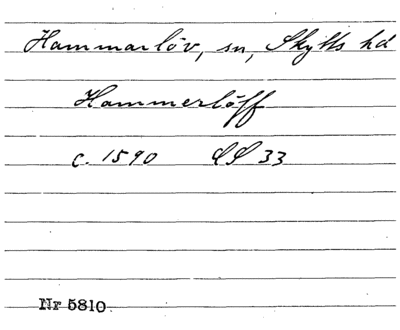 Hammarlöv, sn, Skytts hd
Hammerlöff
c. 1590 SS 33
Nr 5810